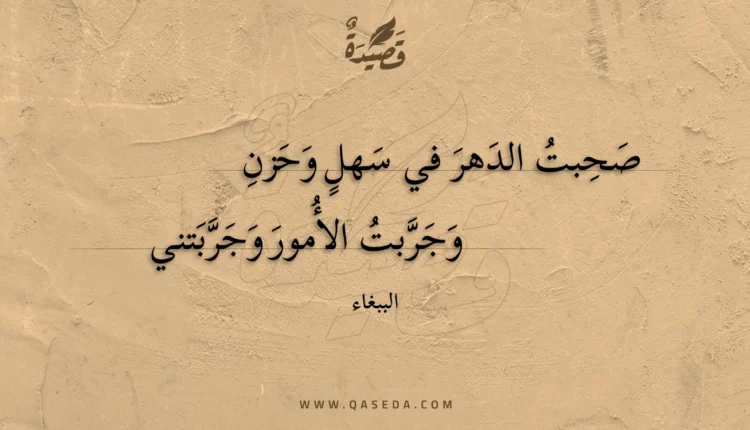 قَصِيدَةٌ
صَحِبتُ الدَهرَ في سَهلٍ وَحَزنِ
وَجَرَّبتُ الأُمورَ وَجَرَّبَتني
الببغاء
WWW.QASEDA.COM